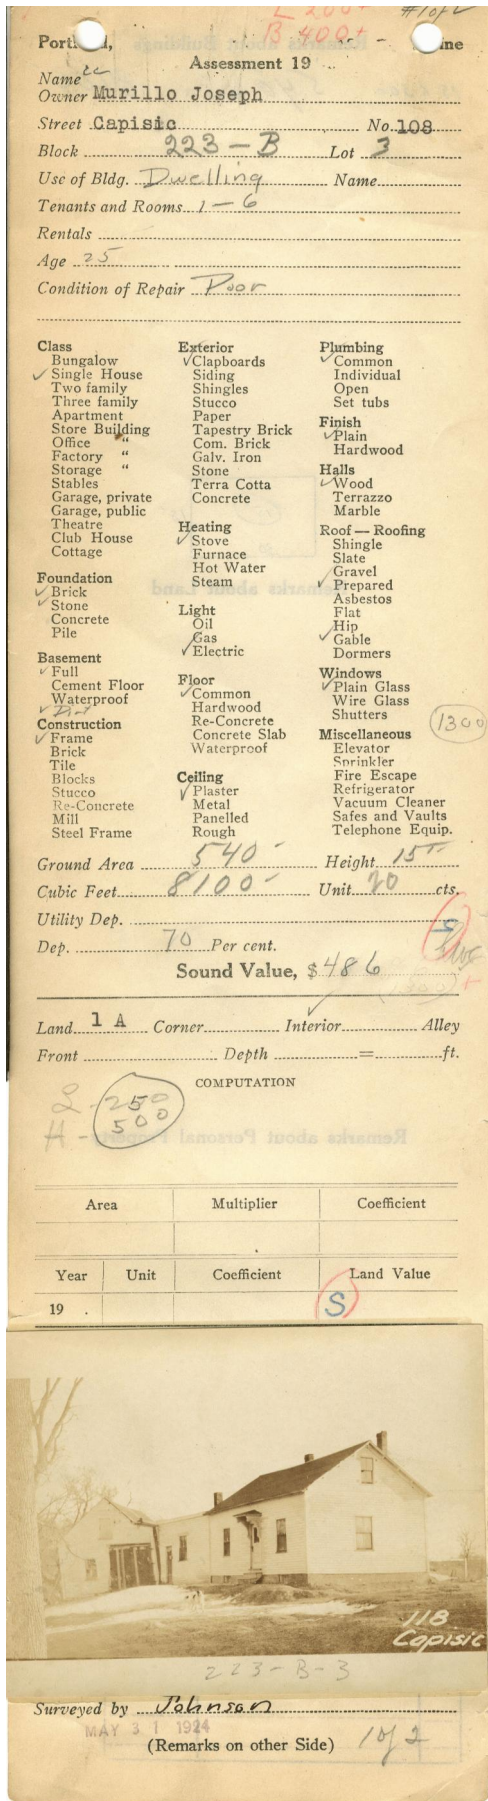 L 200+ #1 of 2
B 400+
Portland, Maine
Assessment 19
Name
Owner Murillo Joseph
Street Capisic No. 108
Block 223-B Lot 3
Use of Bldg. Dwelling Name
Tenants and Rooms 1-6
Rentals
Age 25
Condition of Repair Poor
Class
Bungalow
✓ Single House
Two family
Three family
Apartment
Store Building
Office "
Factory "
Storage "
Stables
Garage, private
Garage, public
Theatre
Club House
Cottage
Foundation
✓ Brick
✓ Stone
Concrete
Pile
Basement
✓ Full
Cement Floor
Waterproof
✓ Dirt
Construction
✓ Frame
Brick
Tile
Blocks
Stucco
Re-Concrete
Mill
Steel Frame
Exterior
✓ Clapboards
Siding
Shingles
Stucco
Paper
Tapestry Brick
Com. Brick
Galv. Iron
Stone
Terra Cotta
Concrete
Heating
✓ Stove
Furnace
Hot Water
Steam
Light
Oil
Gas
✓ Electric
Floor
✓ Common
Hardwood
Re-Concrete
Concrete Slab
Waterproof
Ceiling
✓ Plaster
Metal
Panelled
Rough
Plumbing
✓ Common
Individual
Open
Set tubs
Finish
✓ Plain
Hardwood
Halls
✓ Wood
Terrazzo
Marble
Roof — Roofing
Shingle
Slate
Gravel
✓ Prepared
Asbestos
Flat
Hip
✓ Gable
Dormers
Windows
✓ Plain Glass
Wire Glass
Shutters
1300
Miscellaneous
Elevator
Sprinkler
Fire Escape
Refrigerator
Vacuum Cleaner
Safes and Vaults
Telephone Equip.
Ground Area 540- Height 15
Cubic Feet 8100- Unit 20 cts.
Utility Dep.
Dep. 70 Per cent.
Sound Value, $ 486
Land 1 A Corner Interior ✓ Alley
Front Depth = ft.
COMPUTATION
L - 250
H - 500
Area Multiplier Coefficient
Year Unit Coefficient Land Value
19 . S
118
Capisic
223-B-3
Surveyed by Johnson
MAY 31 1924
(Remarks on other Side) 1 of 2